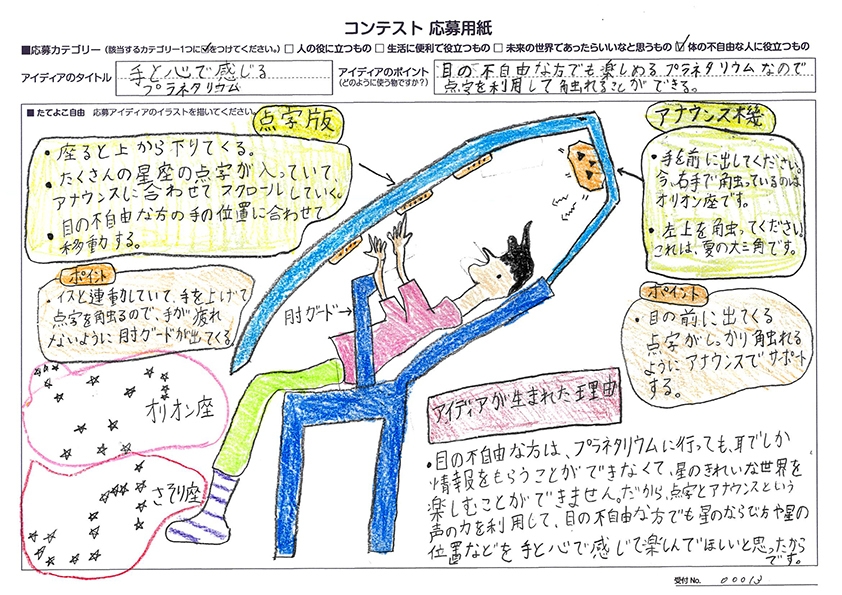 コンテスト 応募用紙
■応募カテゴリー（該当するカテゴリー1つに✓をつけてください。）□ 人の役に立つもの □ 生活に便利で役立つもの □ 未来の世界であったらいいなと思うもの ☑ 体の不自由な人に役立つもの
アイディアのタイトル
手と心で感じる
プラネタリウム
アイディアのポイント
（どのように使う物ですか？）
目の不自由な方でも楽しめるプラネタリウムなので
点字を利用して触れることができる。
■ たてよこ自由 応募アイディアのイラストを描いてください。
点字版
・座ると上から下りてくる。
・たくさんの星座の点字が入っていて、
アナウンスに合わせてスクロールしていく。
・目の不自由な方の手の位置に合わせて
移動する。
アナウンス機
・手を前に出してください。
今、右手で触っているのは
オリオン座です。
・左上を触ってください。
これは、夏の大三角です。
ポイント
・イスと連動していて、手を上げて
点字を触るので、手が疲れ
ないように肘ガードが出てくる。
肘ガード→
ポイント
・目の前に出てくる
点字がしっかり触れる
ようにアナウンスでサポート
する。
オリオン座
さそり座
アイディアが生まれた理由
・目の不自由な方は、プラネタリウムに行っても、耳でしか
情報をもらうことができなくて、星のきれいな世界を
楽しむことができません。だから、点字とアナウンスという
声の力を利用して、目の不自由な方でも星のならび方や星の
位置などを手と心で感じて楽しんでほしいと思ったから
です。
受付 No. 00013